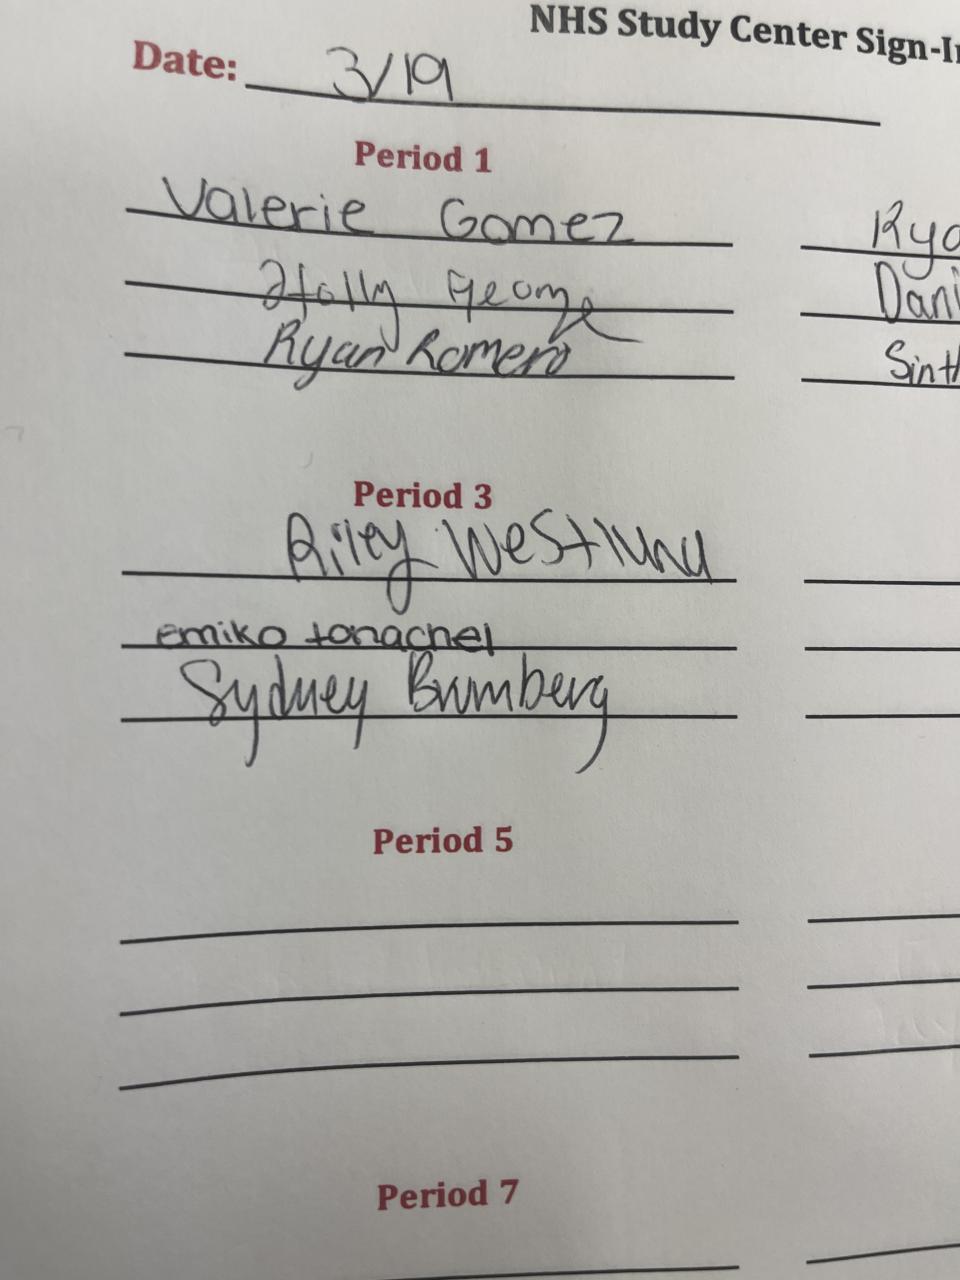 NHS Study Center Sign-In
Date: 3/19
Period 1
Valerie Gomez
Holly George
Ryan Romero
Rya
Dani
Sinth
Period 3
Riley Westlund
emiko tonachel
Sydney Brumberg
Period 5
Period 7